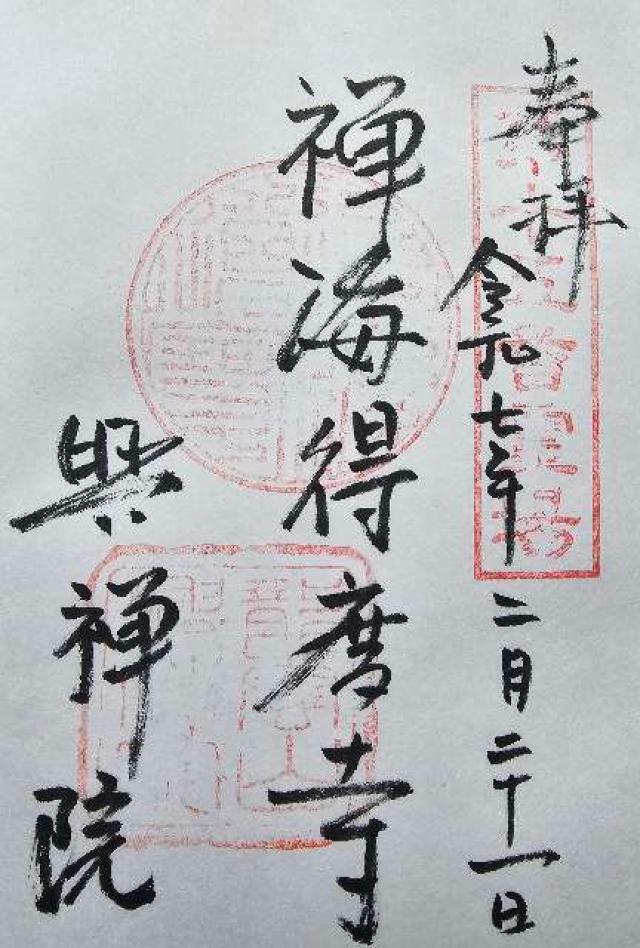 奉拝
令和七年二月二十一日
禅海得度寺
興禅院